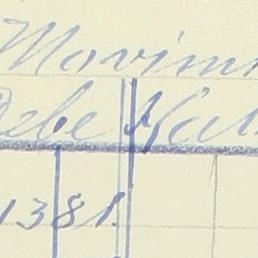 Movim
Debe Ha
1381.